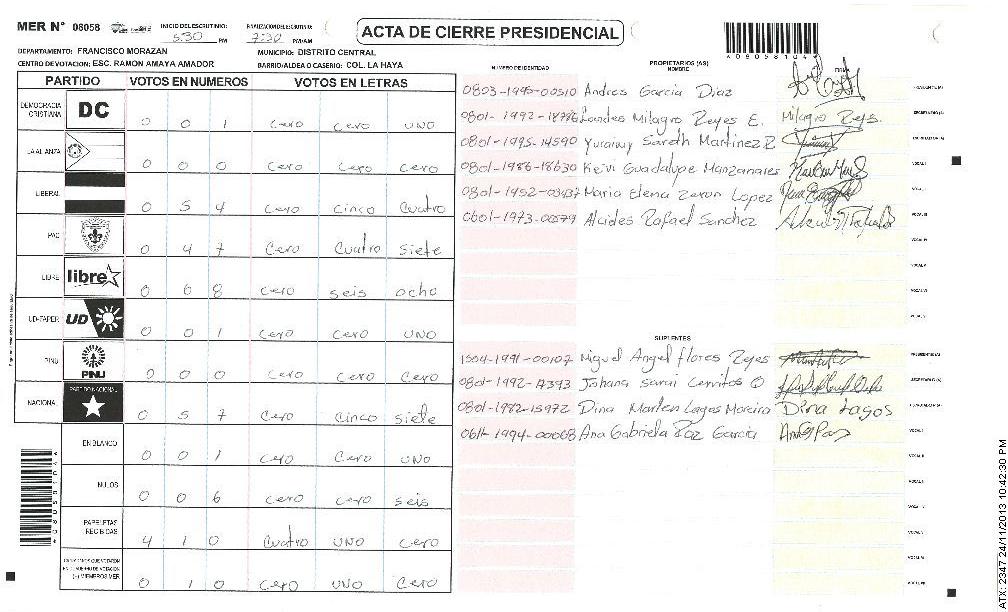 MER N° 08058 INICIO DEL ESCRUTINIO: 5:30 PM FINALIZACION DEL ESCRUTINIO: 7:30 PM/AM
ACTA DE CIERRE PRESIDENCIAL
DEPARTAMENTO: FRANCISCO MORAZAN MUNICIPIO: DISTRITO CENTRAL
CENTRO DE VOTACION: ESC. RAMON AMAYA AMADOR BARRIO/ALDEA O CASERIO: COL. LA HAYA
PARTIDO VOTOS EN NUMEROS VOTOS EN LETRAS
DEMOCRACIA CRISTIANA DC 0 0 1 Cero Cero UNO
LA ALIANZA 0 0 0 Cero Cero Cero
LIBERAL 0 5 4 Cero Cinco Cuatro
PAC 0 4 7 Cero Cuatro Siete
LIBRE libre 0 6 8 Cero seis ocho
UD-FAPER UD 0 0 1 Cero Cero UNO
PINU PINU 0 0 0 Cero Cero Cero
NACIONAL PARTIDO NACIONAL 0 5 7 Cero Cinco siete
EN BLANCO 0 0 1 Cero Cero UNO
NULOS 0 0 6 Cero Cero seis
PAPELETAS RECIBIDAS 4 1 0 Cuatro UNO Cero
CIUDADANOS QUE VOTARON EN CUADERNO DE VOTACION (+) MIEMBROS MER 0 1 0 Cero UNO Cero
NUMERO DE IDENTIDAD PROPIETARIOS (AS) NOMBRE FIRMA
0803-1995-00510 Andres Garcia Diaz PRESIDENTE (A)
Lourdes Milagro Reyes E. Milagro Reys. SECRETARIO (A)
0801-1995-14590 Martinez R ESCRUTADOR (A)
0801-1986-18630 Keivi Guadalupe Manzanares VOCAL I
0801-1952-03437 Maria Elena Zeron Lopez VOCAL II
0601-1973-00579 Alcides Rafael Sanchez VOCAL III
VOCAL IV
VOCAL V
VOCAL VI
SUPLENTES
1504-1991-00107 Miguel Angel flores Reyes PRESIDENTE (A)
Johana Sarai Cerritos O SECRETARIO (A)
0801-1982-15972 Dina Marlen Lagos Moreira Dina Lagos ESCRUTADOR (A)
0611-1994-00068 Ana Gabriela Paz Garcia VOCAL I
VOCAL II
VOCAL III
VOCAL IV
VOCAL V
VOCAL VI
ATX: 2347 24/11/2013 10:42:30 PM